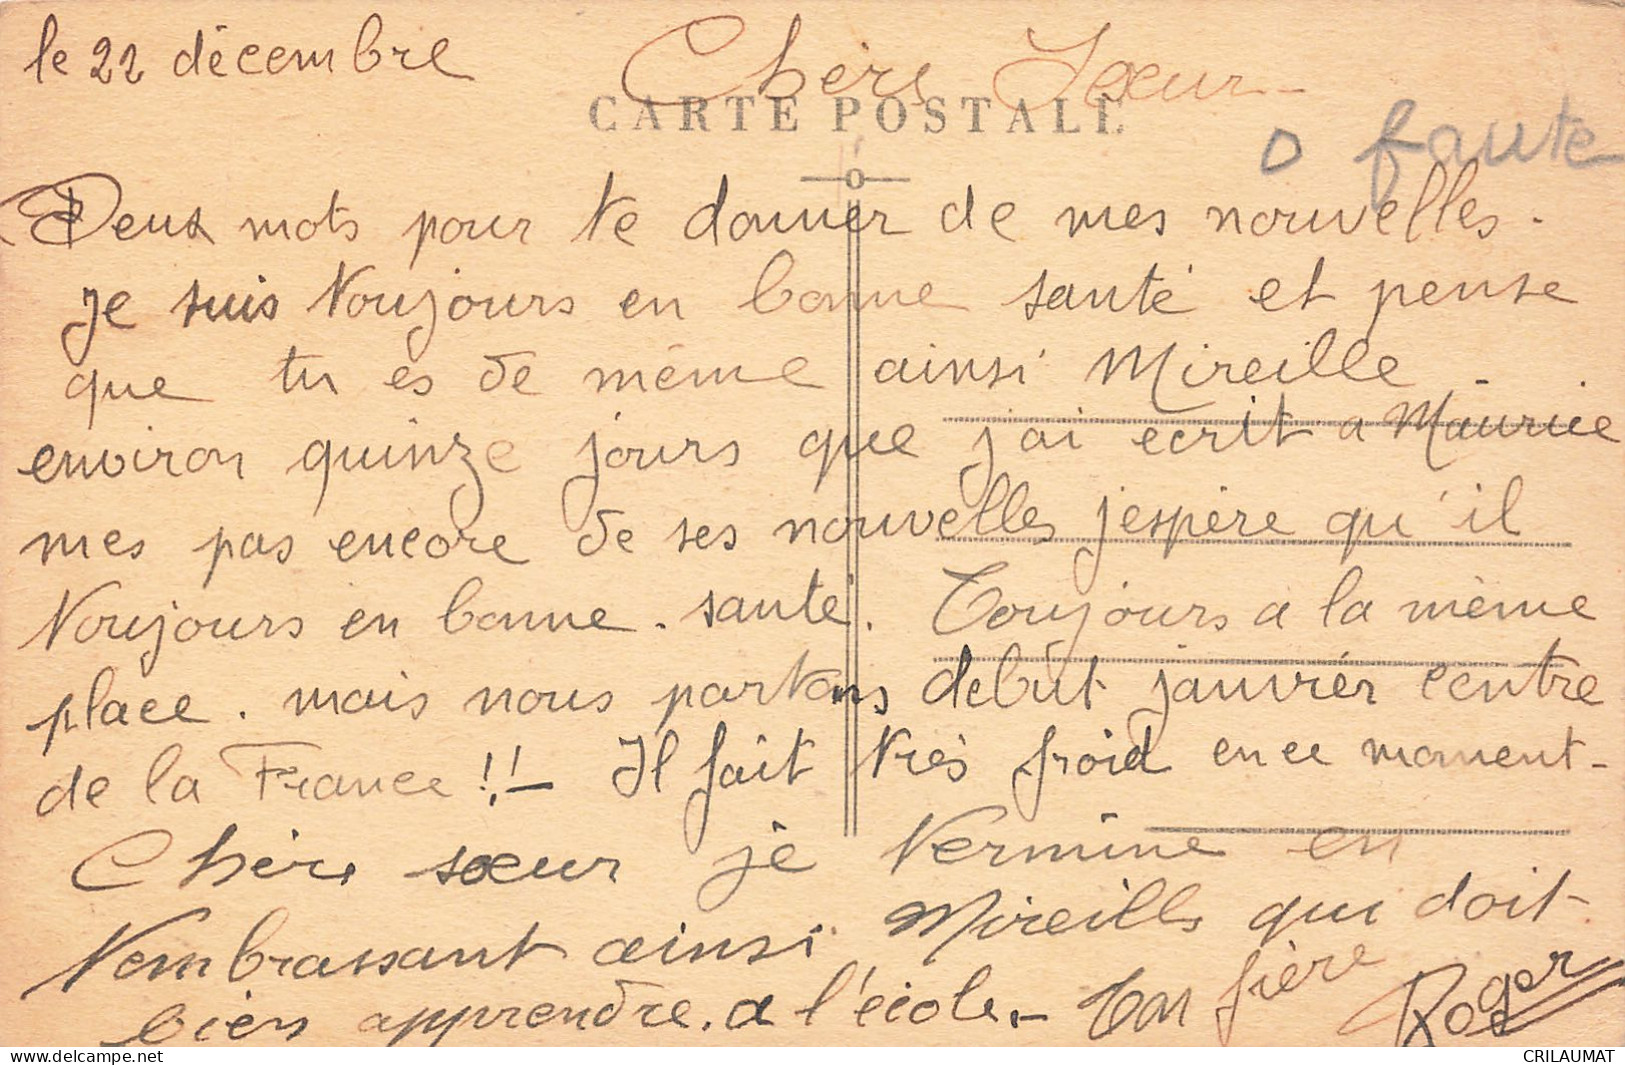 le 22 décembre
Chère Sœur
CARTE POSTALE
0 faute
Deux mots pour te donner de mes nouvelles.
Je suis toujours en bonne santé et pense
que tu es de même ainsi Mireille.
environ quinze jours que j'ai ecrit a Maurice
mes pas encore de ses nouvelles j'espère qu'il
toujours en bonne santé. Toujours a la même
place. mais nous partons debût janvier centre
de la France !! - Il fait très froid en ce moment -
Chère sœur je termine en
t'embrassant ainsi Mireille qui doit
bien apprendre a l'école - Ton frère Roger
CRILAUMAT